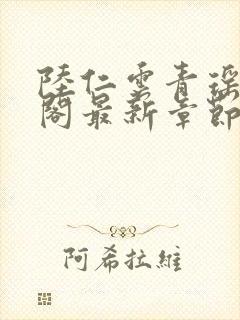 陸仁雲青瑤
閣最新章節
阿希拉維